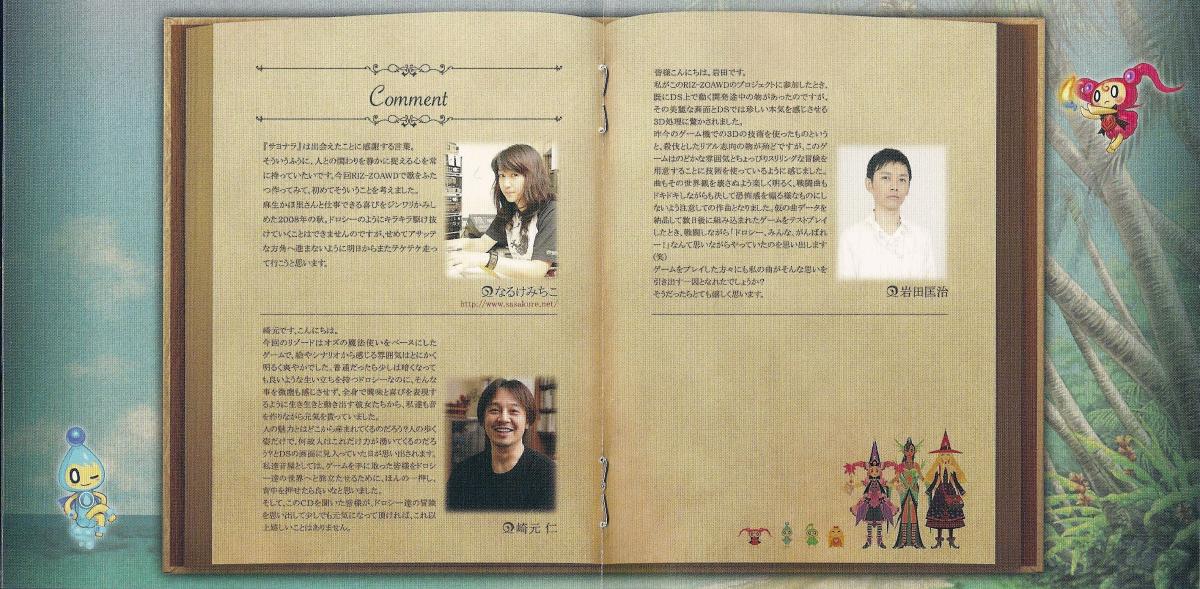 Comment
『サヨナラ』は出会えたことに感謝する言葉。
そういうふうに、人との関わりを静かに捉える心を常
に持っていたいです。今回RIZ-ZOAWDで歌をふた
つ作ってみて、初めてそういうことを考えました。
麻生かほ里さんと仕事できる喜びをジンワリかみし
めた2008年の秋。ドロシーのようにキラキラ駆け抜
けていくことはできませんのですが、せめてアサッテ
な方角へ進まないように明日からまたテケテケ走っ
て行こうと思います。
なるけみちこ
http://www.sasakure.net/
崎元です、こんにちは。
今回のリゾードはオズの魔法使いをベースにした
ゲームで、絵やシナリオから感じる雰囲気はとにかく
明るく爽やかでした。普通だったら少しは暗くなって
も良いような生い立ちを持つドロシーなのに、そんな
事を微塵も感じさせず、全身で興味と喜びを表現す
るように生き生きと動き出す彼女たちから、私達も音
を作りながら元気を貰っていました。
人の魅力とはどこから産まれてくるのだろう?人の歩く
姿だけで、何故人はこれだけ力が湧いてくるのだろ
う?とDSの画面に見入っていた日が思い出されます。
私達音屋としては、ゲームを手に取った皆様をドロシ
ー達の世界へと旅立たせるために、ほんの一押し、
背中を押せたら良いなと思いました。
そして、このCDを聞いた皆様が、ドロシー達の冒険
を思い出して少しでも元気になって頂ければ、これ以
上嬉しいことはありません。
崎元 仁
皆様こんにちは。岩田です。
私がこのRIZ-ZOAWDのプロジェクトに参加したとき、
既にDS上で動く開発途中の物があったのですが、
その美麗な画面とDSでは珍しい本気を感じさせる
3D処理に驚かされました。
昨今のゲーム機での3Dの技術を使ったものという
と、殺伐としたリアル志向の物が殆どですが、このゲ
ームはのどかな雰囲気とちょっぴりスリリングな冒険を
用意することに技術を使っているように感じました。
曲もその世界観を壊さぬよう楽しく明るく、戦闘曲も
ドキドキしながらも決して恐怖感を煽る様なものにし
ないよう注意しての作曲となりました。仮の曲データを
納品して数日後に組み込まれたゲームをテストプレイ
したとき、戦闘しながら「ドロシー、みんな、がんばれ
ー!」なんて思いながらやっていたのを思い出します
(笑)
ゲームをプレイした方々にも私の曲がそんな思いを
引き出す一因となれたでしょうか?
そうだったらとても嬉しく思います。
岩田匡治